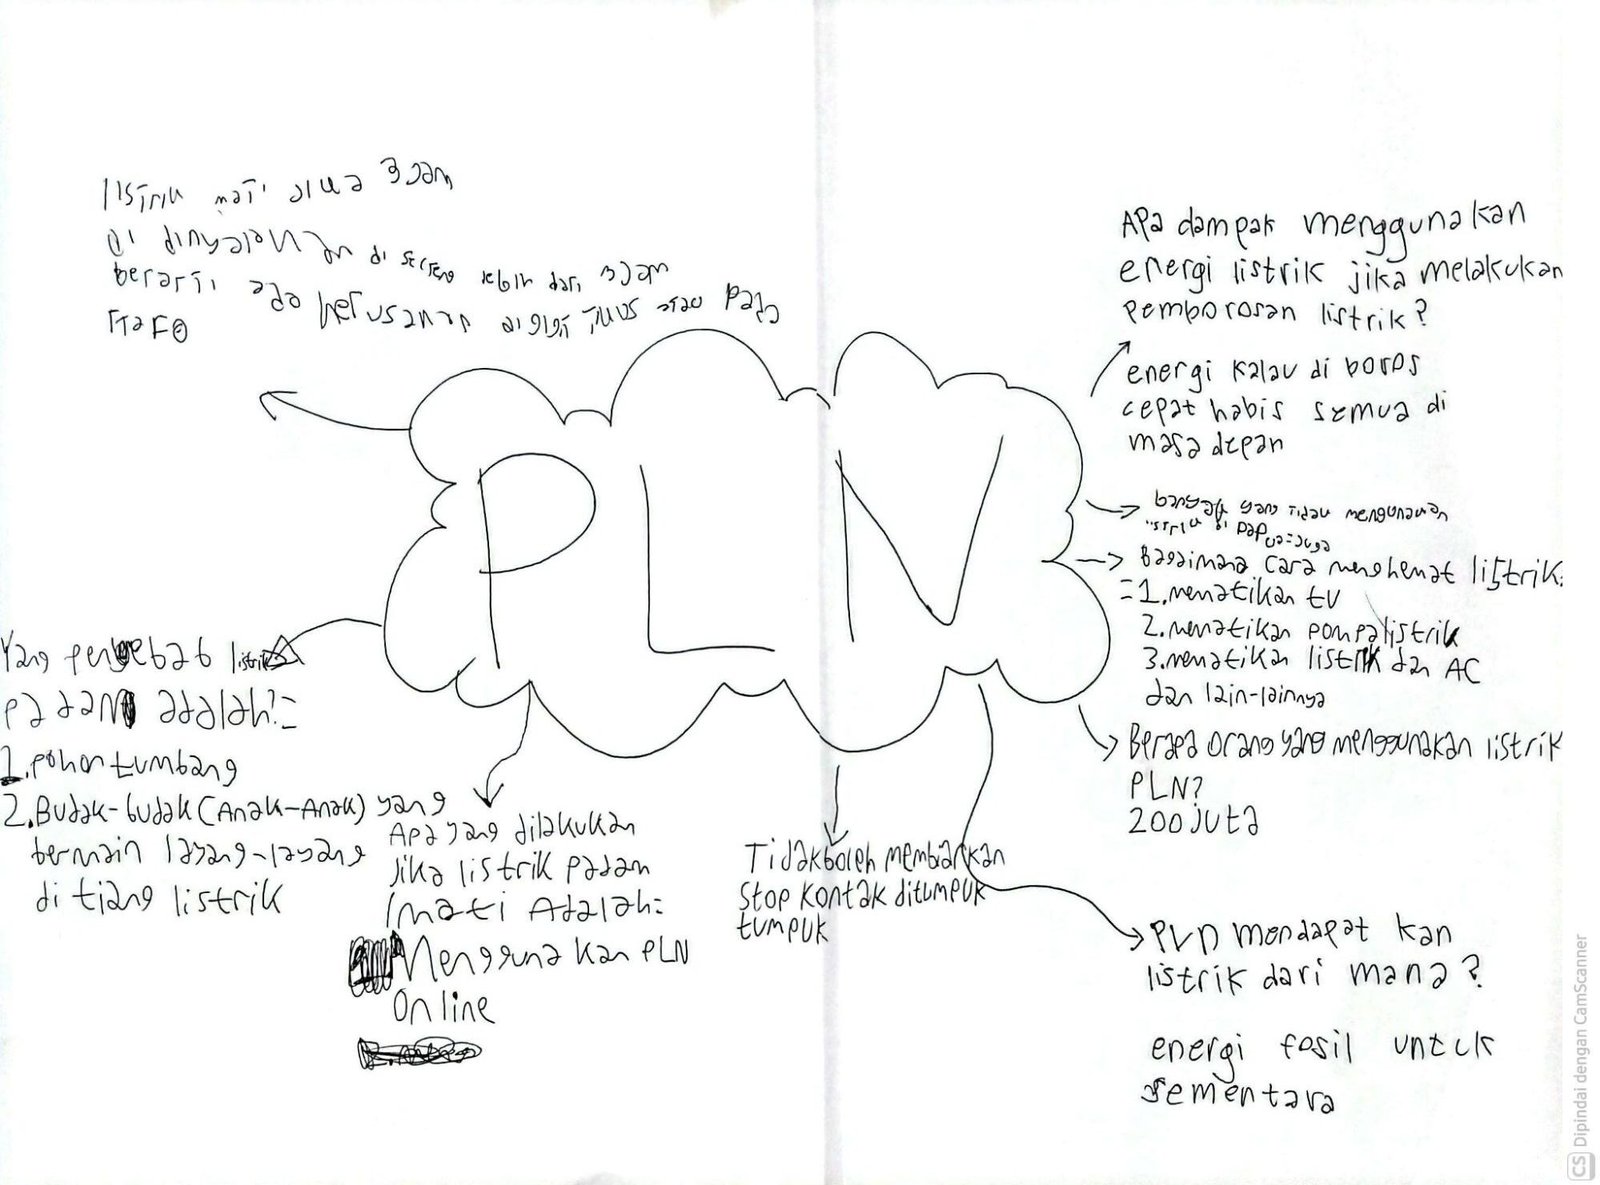 listrik mati jika 3 jam
di dinyalakan di lebih dari 3 jam
berarti ada kerusakan atau pada
Apa dampak menggunakan
energi listrik jika melakukan
pemborosan listrik?
energi kalau di boros
cepat habis semua di
masa depan
banyak yang tidak mengunakan
listrik di papua juga
Bagaimana cara menghemat listrik:
=1.mematikan tv
2.mematikan pompa listrik
3.mematikan listrik dan AC
dan lain-lainnya
Berapa orang yang menggunakan listrik
PLN?
200 juta
PLN
Yang penyebab listrik
padam adalah:=
1.pohon tumbang
2.Budak-budak (Anak-Anak) yang
bermain layang-layang
di tiang listrik
Apa yang dilakukan
Jika listrik padam
/mati Adalah:
Menggunakan PLN
Online
Tidak boleh membiarkan
Stop kontak ditumpuk
tumpuk
PLN mendapat kan
listrik dari mana?
energi fosil untuk
sementara
CS Dipindai dengan CamScanner